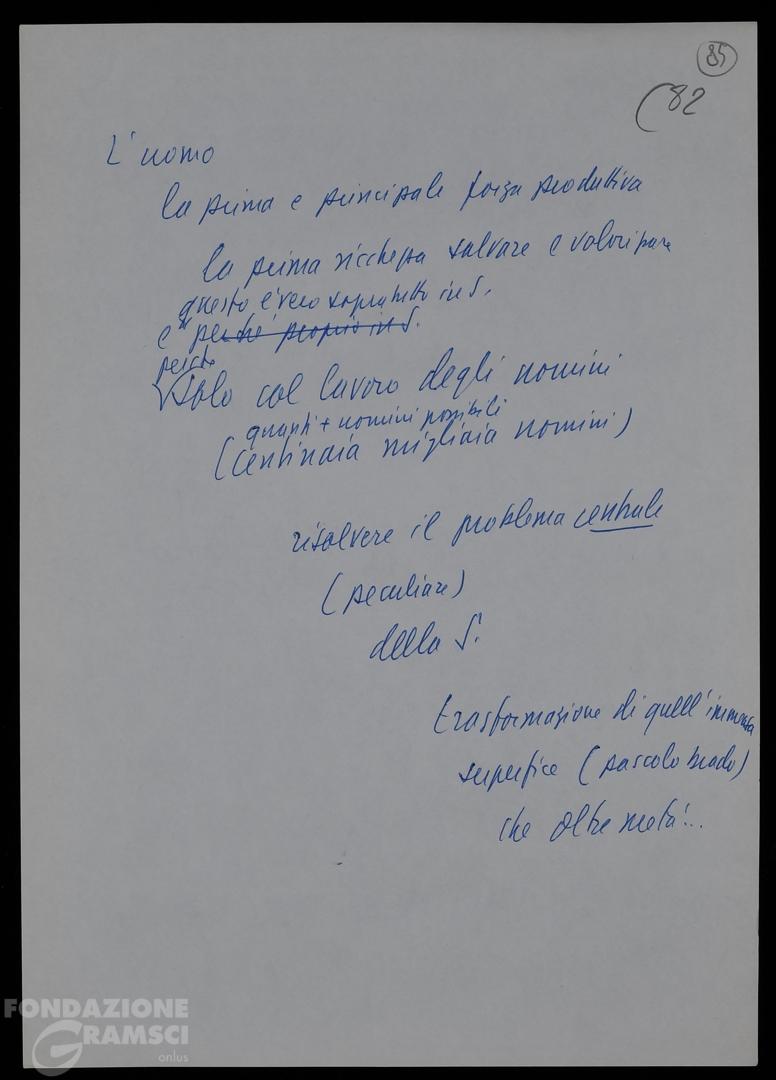 85
(82
L'uomo
la prima e principale forza produttiva
la prima ricchezza salvare e valorizzare
questo è vero sopratutto in S.
e perché proprio in S.
perché
solo col lavoro degli uomini
quanti + uomini possibili
(centinaia migliaia uomini)
risolvere il problema centrale
(peculiare)
della S.
trasformazione di quell'immensa
superfice (pascolo brado)
che oltre metà...
FONDAZIONE
GRAMSCI
onlus